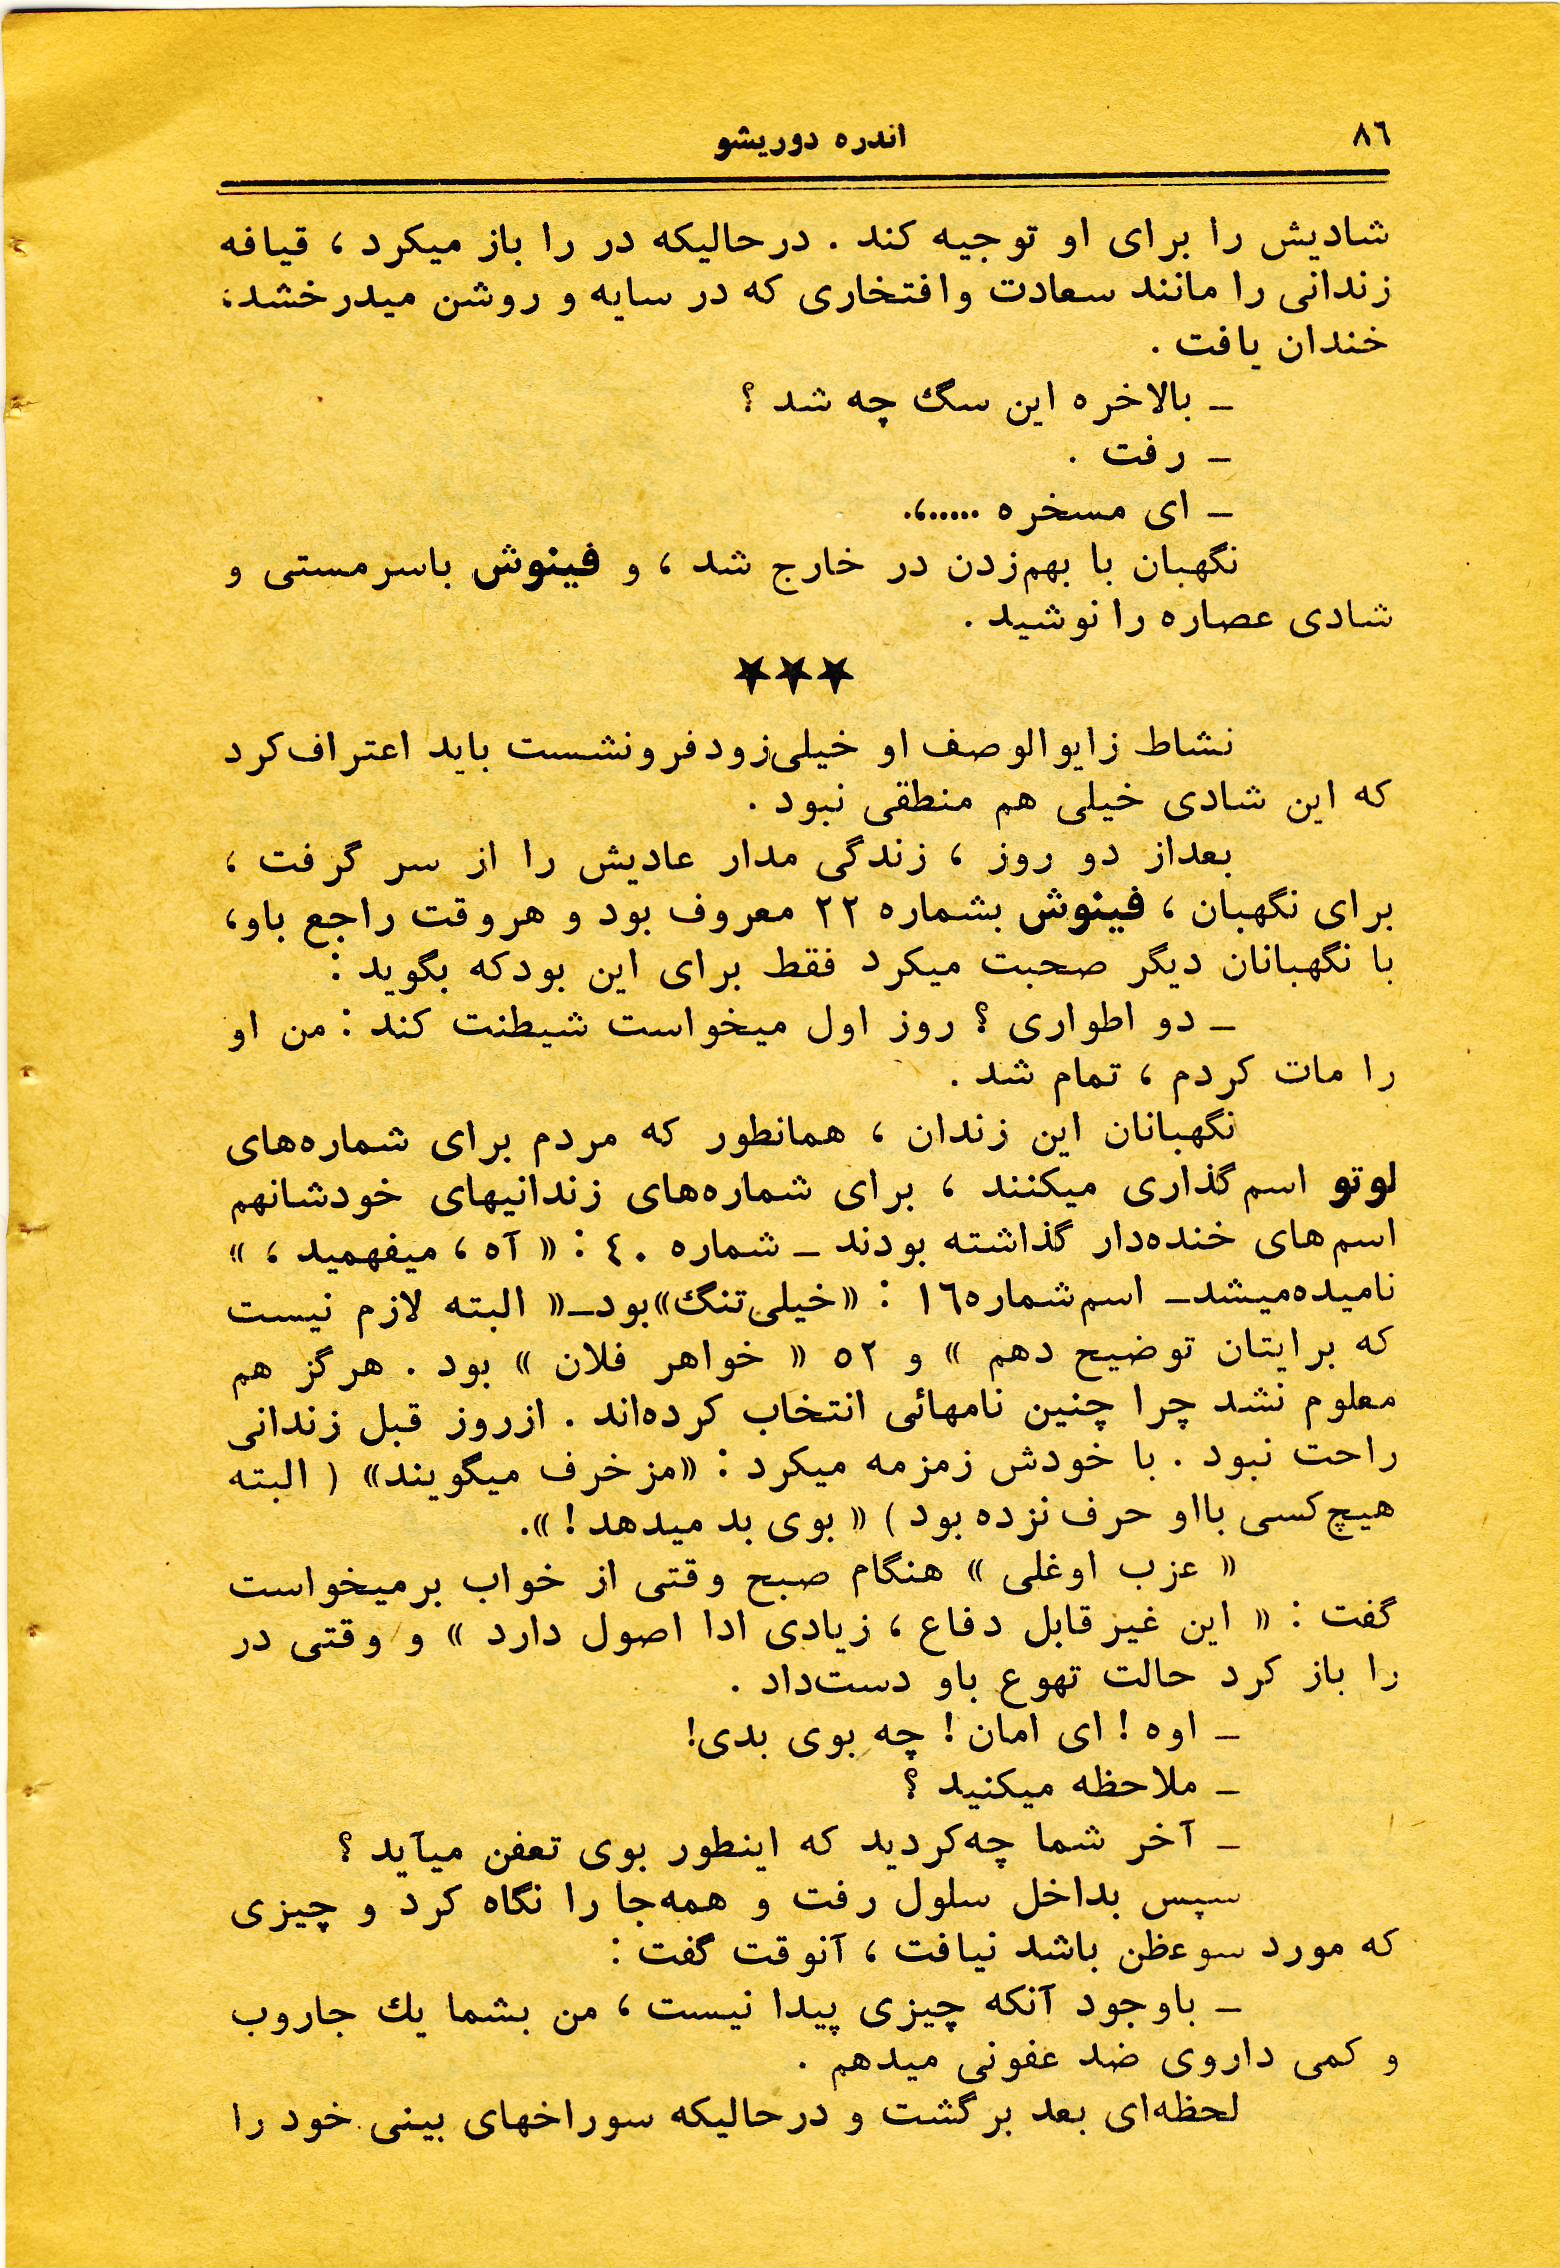 ۸٦
اندره دوریشو
شادیش را برای او توجیه کند . درحالیکه در را باز میکرد ، قیافه
زندانی را مانند سعادت وافتخاری که در سایه و روشن میدرخشد،
خندان یافت .
ـ بالاخره این سگ چه شد ؟
ـ رفت .
ـ ای مسخره .....،.
نگهبان با بهم‌زدن در خارج شد ، و فینوش باسرمستی و
شادی عصاره را نوشید .
★★★
نشاط زایوالوصف او خیلی‌زودفرونشست باید اعتراف‌کرد
که این شادی خیلی هم منطقی نبود .
بعداز دو روز ، زندگی مدار عادیش را از سر گرفت ،
برای نگهبان ، فینوش بشماره ۲۲ معروف بود و هروقت راجع باو،
با نگهبانان دیگر صحبت میکرد فقط برای این بودکه بگوید :
ـ دو اطواری ؟ روز اول میخواست شیطنت کند : من او
را مات کردم ، تمام شد .
نگهبانان این زندان ، همانطور که مردم برای شماره‌های
لوتو اسم‌گذاری میکنند ، برای شماره‌های زندانیهای خودشانهم
اسم‌های خنده‌دار گذاشته بودند ـ شماره ٤۰ : « آه ، میفهمید ، »
نامیده‌میشدـ اسم‌شماره۱٦ : «خیلی‌تنگ»بودـ« البته لازم نیست
که برایتان توضیح دهم » و ۵۲ « خواهر فلان » بود . هرگز هم
معلوم نشد چرا چنین نامهائی انتخاب کرده‌اند . ازروز قبل زندانی
راحت نبود . با خودش زمزمه میکرد : «مزخرف میگویند» ( البته
هیچ‌کسی بااو حرف‌نزده‌بود ) « بوی بد میدهد ! ».
« عزب اوغلی » هنگام صبح وقتی از خواب برمیخواست
گفت : « این غیرقابل دفاع ، زیادی ادا اصول دارد » و وقتی در
را باز کرد حالت تهوع باو دست‌داد .
ـ اوه ! ای امان ! چه بوی بدی!
ـ ملاحظه میکنید ؟
ـ آخر شما چه‌کردید که اینطور بوی تعفن میآید ؟
سپس بداخل سلول رفت و همه‌جا را نگاه کرد و چیزی
که مورد سوءظن باشد نیافت ، آنوقت گفت :
ـ باوجود آنکه چیزی پیدا نیست ، من بشما یك جاروب
و کمی داروی ضد عفونی میدهم .
لحظه‌ای بعد برگشت و درحالیکه سوراخهای بینی خود را